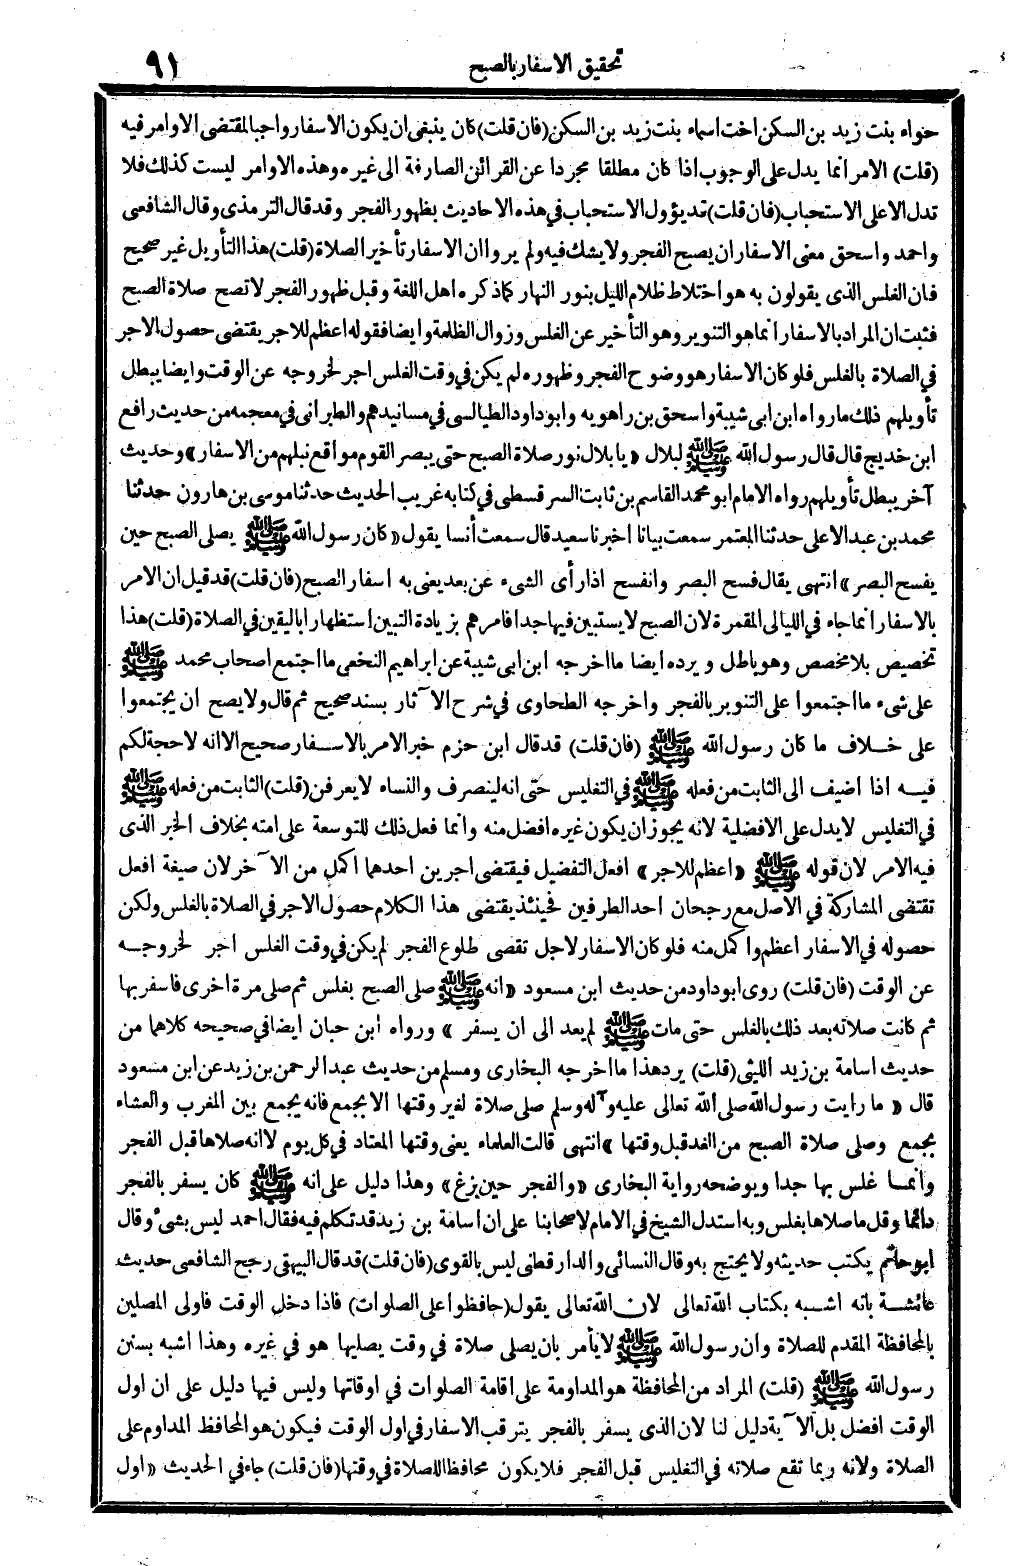 تحقيق الاسفار بالصبح ٩١
حواء بنت زيد بن السكن اخت اسماء بنت زيد بن السكن (فان قلت) كان ينبغى ان يكون الاسفار واجبا لمقتضى الاوامر فيه
(قلت) الامر انما يدل على الوجوب اذا كان مطلقا مجردا عن القرائن الصارفة الى غيره وهذه الاوامر ليست كذلك فلا
تدل الا على الاستحباب (فان قلت) قد يؤول الاستحباب فى هذه الاحاديث بظهور الفجر وقد قال الترمذى وقال الشافعى
واحمد واسحق معنى الاسفار ان يصبح الفجر ولا يشك فيه ولم يروا ان الاسفار تأخير الصلاة (قلت) هذا التأويل غير صحيح
فان الغلس الذى يقولون به هو اختلاط ظلام الليل بنور النهار كما ذكره اهل اللغة وقبل ظهور الفجر لا تصح صلاة الصبح
فثبت ان المراد بالاسفار انما هو التنوير وهو التأخير عن الغلس وزوال الظلمة وايضا فقوله اعظم للاجر يقتضى حصول الاجر
فى الصلاة بالغلس فلو كان الاسفار هو وضوح الفجر وظهوره لم يكن فى وقت الغلس اجر لخروجه عن الوقت وايضا يبطل
تأويلهم ذلك ما رواه ابن ابى شيبة واسحق بن راهويه وابو داود الطيالسى فى مسانيدهم والطبرانى فى معجمه من حديث رافع
ابن خديج قال قال رسول الله ﷺ لبلال « يا بلال نور صلاة الصبح حتى يبصر القوم مواقع نبلهم من الاسفار » وحديث
آخر يبطل تأويلهم رواه الامام ابو محمد القاسم بن ثابت السرقسطى فى كتابه غريب الحديث حدثنا موسى بن هارون حدثنا
محمد بن عبد الاعلى حدثنا المعتمر سمعت بيانا اخبرنا سعيد قال سمعت أنسا يقول « كان رسول الله ﷺ يصلى الصبح حين
يفسح البصر » انتهى يقال فسح البصر وانفسح اذا رأى الشىء عن بعد يعنى به اسفار الصبح (فان قلت) قد قيل ان الامر
بالاسفار انما جاء فى الليالى المقمرة لان الصبح لا يستبين فيها جدا فامرهم بزيادة التبين استظهارا باليقين فى الصلاة (قلت) هذا
تخصيص بلا مخصص وهو باطل ويرده ايضا ما اخرجه ابن ابى شيبة عن ابراهيم النخعى ما اجتمع اصحاب محمد ﷺ
على شىء ما اجتمعوا على التنوير بالفجر واخرجه الطحاوى فى شرح الآثار بسند صحيح ثم قال ولا يصح ان يجتمعوا
على خلاف ما كان رسول الله ﷺ (فان قلت) قد قال ابن حزم خبر الامر بالاسفار صحيح الا انه لا حجة لكم
فيه اذا اضيف الى الثابت من فعله ﷺ فى التغليس حتى انه لينصرف والنساء لا يعرفن (قلت) الثابت من فعله ﷺ
فى التغليس لا يدل على الافضلية لانه يجوز ان يكون غيره افضل منه وانما فعل ذلك للتوسعة على امته بخلاف الخبر الذى
فيه الامر لان قوله ﷺ « اعظم للاجر » افعل التفضيل فيقتضى اجرين احدهما اكمل من الآخر لان صيغة افعل
تقتضى المشاركة فى الاصل مع رجحان احد الطرفين فحينئذ يقتضى هذا الكلام حصول الاجر فى الصلاة بالغلس ولكن
حصوله فى الاسفار اعظم واكمل منه فلو كان الاسفار لاجل تقصى طلوع الفجر لم يكن فى وقت الغلس اجر لخروجه
عن الوقت (فان قلت) روى ابو داود من حديث ابن مسعود « انه ﷺ صلى الصبح بغلس ثم صلى مرة اخرى فاسفر بها
ثم كانت صلاته بعد ذلك بالغلس حتى مات ﷺ لم يعد الى ان يسفر » ورواه ابن حبان ايضا فى صحيحه كلاهما من
حديث اسامة بن زيد الليثى (قلت) يرد هذا ما اخرجه البخارى ومسلم من حديث عبد الرحمن بن زيد عن ابن مسعود
قال « ما رايت رسول الله صلى الله تعالى عليه وآله وسلم صلى صلاة لغير وقتها الا بجمع فانه يجمع بين المغرب والعشاء
بجمع وصلى صلاة الصبح من الغد قبل وقتها » انتهى قالت العلماء يعنى وقتها المعتاد فى كل يوم لا انه صلاها قبل الفجر
وانما غلس بها جدا ويوضحه رواية البخارى « والفجر حين بزغ » وهذا دليل على انه ﷺ كان يسفر بالفجر
دائما وقل ما صلاها بغلس وبه استدل الشيخ فى الامام لاصحابنا على ان اسامة بن زيد قد تكلم فيه فقال احمد ليس بشىء وقال
ابو حاتم يكتب حديثه ولا يحتج به وقال النسائى والدارقطنى ليس بالقوى (فان قلت) قد قال البيهقى رجح الشافعى حديث
عائشة بانه اشبه بكتاب الله تعالى لان الله تعالى يقول (حافظوا على الصلوات) فاذا دخل الوقت فاولى المصلين
بالمحافظة المقدم للصلاة وان رسول الله ﷺ لا يأمر بان يصلى صلاة فى وقت يصليها هو فى غيره وهذا اشبه بسنن
رسول الله ﷺ (قلت) المراد من المحافظة هو المداومة على اقامة الصلوات فى اوقاتها وليس فيها دليل على ان اول
الوقت افضل بل الآية دليل لنا لان الذى يسفر بالفجر يترقب الاسفار فى اول الوقت فيكون هو المحافظ المداوم على
الصلاة ولانه ربما تقع صلاته فى التغليس قبل الفجر فلا يكون محافظا للصلاة فى وقتها (فان قلت) جاء فى الحديث « اول